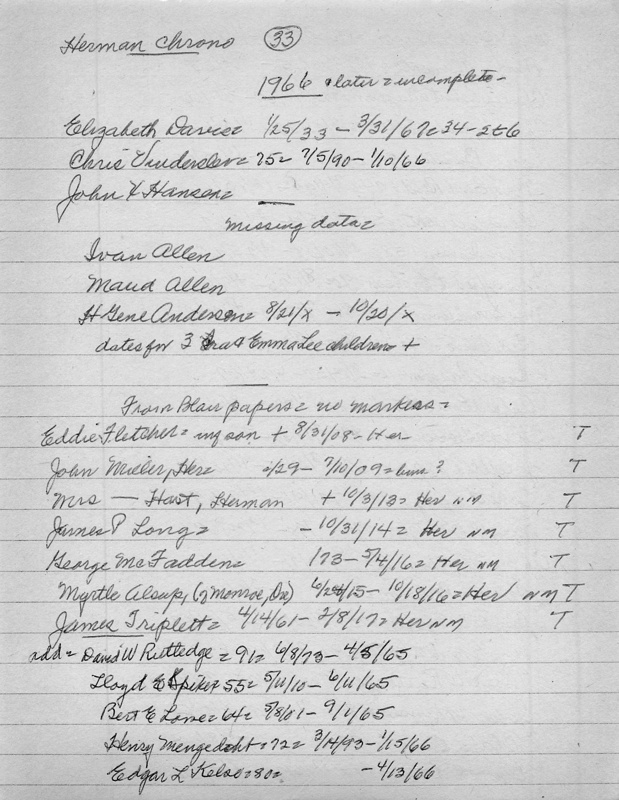 Herman Chrono 33
1966 & later = incomplete -
Elizabeth Davis = 1/25/33 - 3/31/67 = 34-2-6
Chris = 75 = 7/5/90 - 1/10/66
John X Hansen =
missing data =
Ivan Allen
Maud Allen
H Gene Anderson = 8/21/x - 10/20/x
dates for 3 Ira & Emma Lee children +
From Blair papers = no markers =
Eddie Fletcher = my son + 8/31/08 - Her T
John Miller, Her = /29 - 7/10/09 = ? T
Mrs — Hast, Herman + 10/3/13 = Her NM T
James P Long = - 10/31/14 = Her NM T
George McFadden = 173 - 5/4/16 = Her NM T
Myrtle Alsup, (of Monroe, Ore) 6/ /15 - 10/18/16 = Her NM T
James Triplett = 4/14/61 - 2/8/17 = Her NM T
add = David W Rutledge = 91 = 6/8/73 - 4/5/65
Lloyd E Spiker 55 = 5/11/10 - 6/11/65
Bert E Lowe = 64 = 5/8/01 - 9/1/65
Henry Mengedoht = 72 = 3/14/93 - 1/15/66
Edgar L Kelso = 80 = - 4/13/66